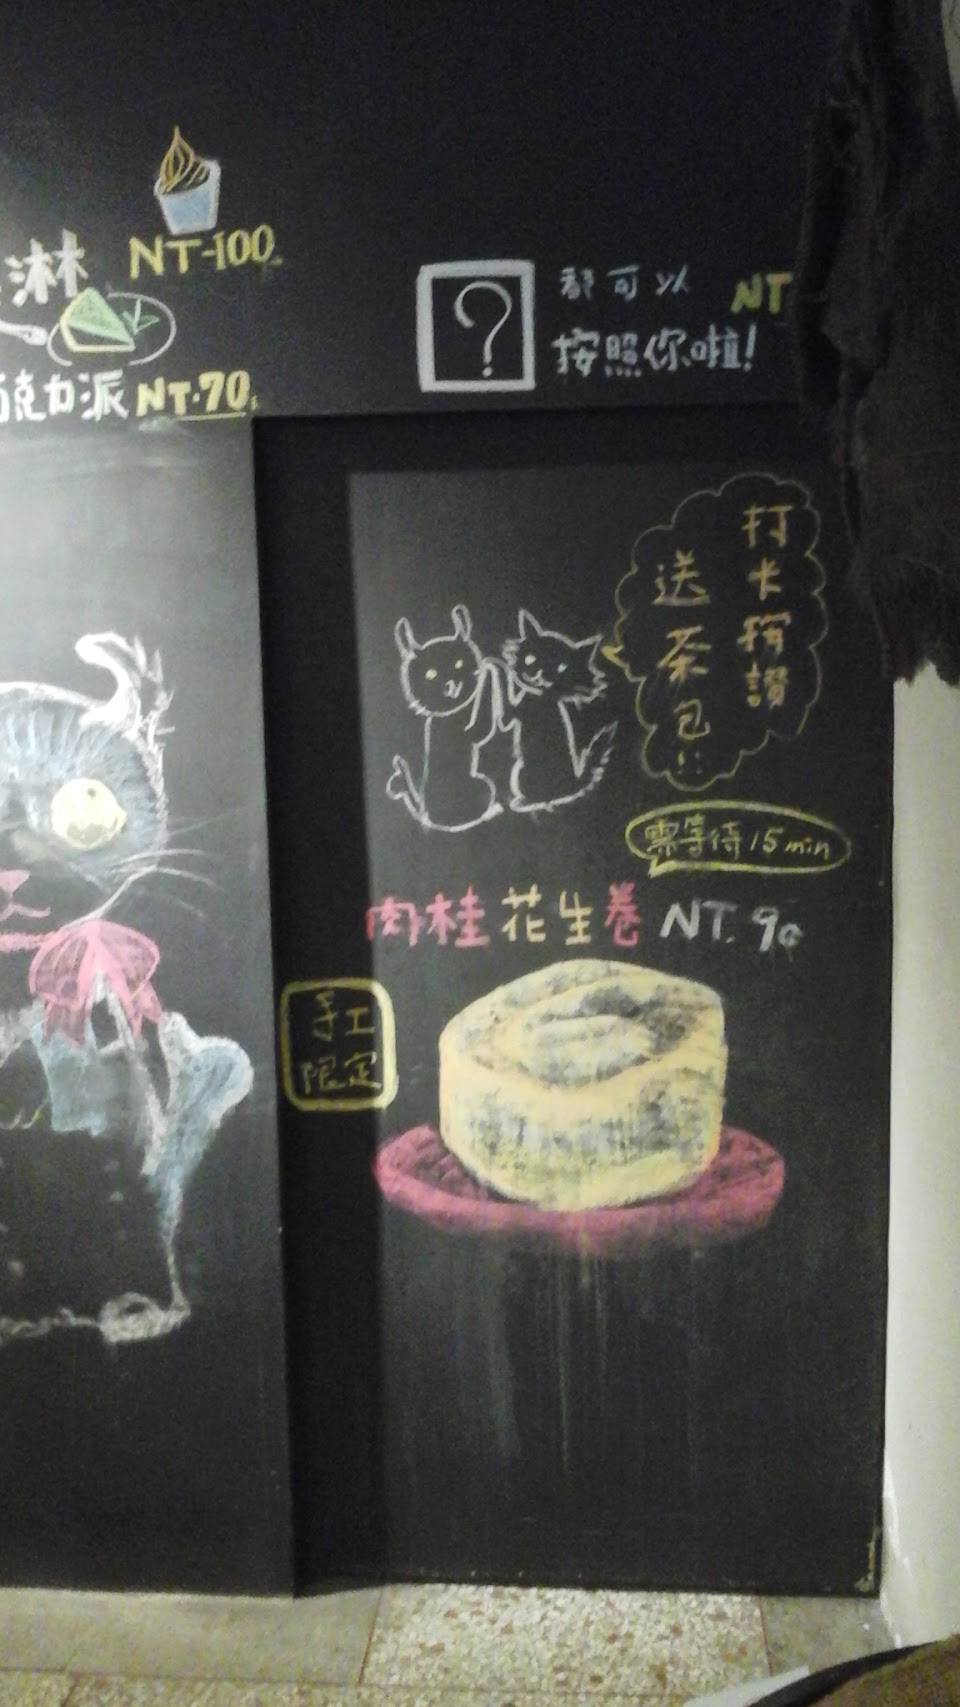 NT-100
淋
克力派 NT.70
?
都可以 NT
按照你啦!
打卡按讚
送茶包!!
需等待15min
肉桂花生卷 NT.90
手工
限定